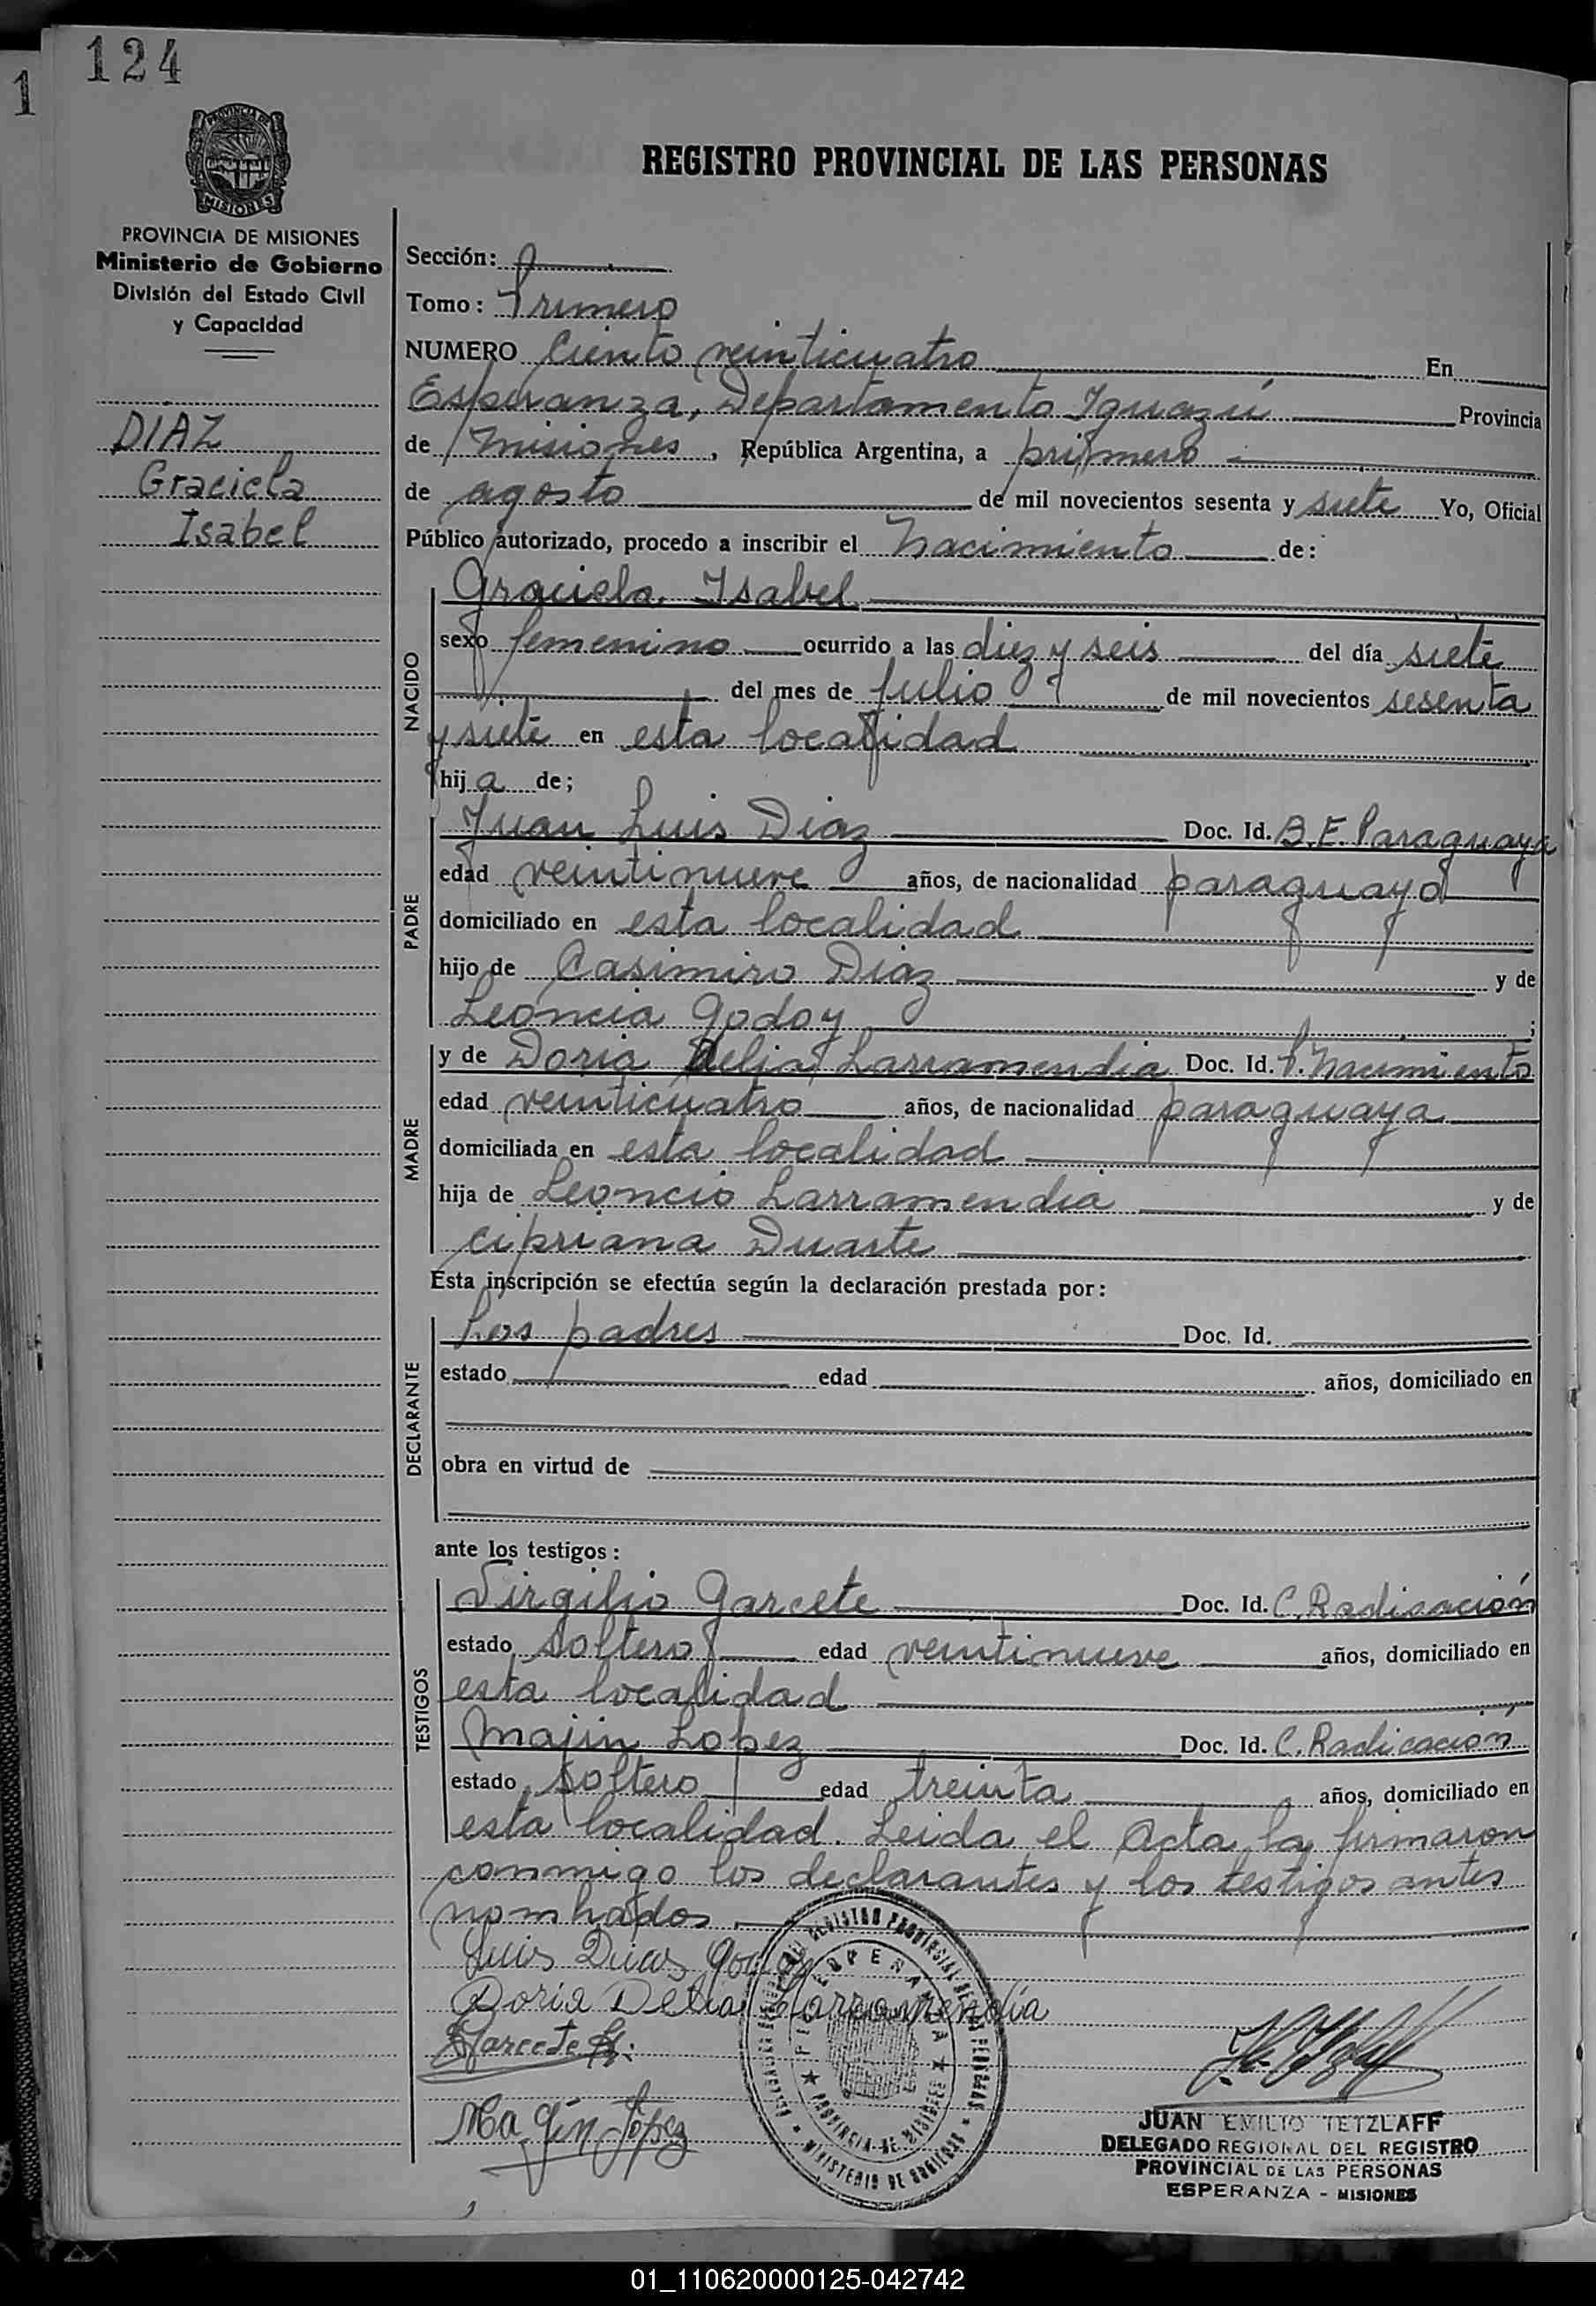 124
1
PROVINCIA DE
MISIONES
REGISTRO PROVINCIAL DE LAS PERSONAS
PROVINCIA DE MISIONES
Ministerio de Gobierno
División del Estado Civil
y Capacidad
DIAZ
Graciela
Isabel
Sección:
Tomo: Primero
NUMERO Ciento veinticuatro En
Esperanza, Departamento Iguazú Provincia
de Misiones, República Argentina, a primero
de agosto de mil novecientos sesenta y siete Yo, Oficial
Público autorizado, procedo a inscribir el Nacimiento de:
NACIDO
Graciela Isabel
sexo femenino ocurrido a las diez y seis del día siete
del mes de Julio de mil novecientos sesenta
y siete en esta localidad
hija de;
PADRE
Juan Luis Diaz Doc. Id. B.E. Paraguaya
edad veintinueve años, de nacionalidad paraguayo
domiciliado en esta localidad
hijo de Casimiro Diaz y de
Leoncia Godoy ;
MADRE
y de Doria Delia Larramendia Doc. Id. P. Nacimiento
edad veinticuatro años, de nacionalidad paraguaya
domiciliada en esta localidad
hija de Leoncio Larramendia y de
Cipriana Duarte
Esta inscripción se efectúa según la declaración prestada por:
DECLARANTE
Los padres Doc. Id.
estado edad años, domiciliado en
obra en virtud de
ante los testigos:
TESTIGOS
Virgilio Garcete Doc. Id. C. Radicación
estado soltero edad veintinueve años, domiciliado en
esta localidad
Majin Lopez Doc. Id. C. Radicación
estado soltero edad treinta años, domiciliado en
esta localidad. Leida el Acta la firmaron
conmigo los declarantes y los testigos antes
nombados.
Luis Dias
Doria Delia Larramendía
Garcete
Magín López
REGISTRO PROVINCIAL DE LAS PERSONAS
ESPERANZA
PROVINCIA DE MISIONES
MINISTERIO DE GOBIERNO
JUAN EMILIO TETZLAFF
DELEGADO REGIONAL DEL REGISTRO
PROVINCIAL DE LAS PERSONAS
ESPERANZA - MISIONES
01_110620000125-042742